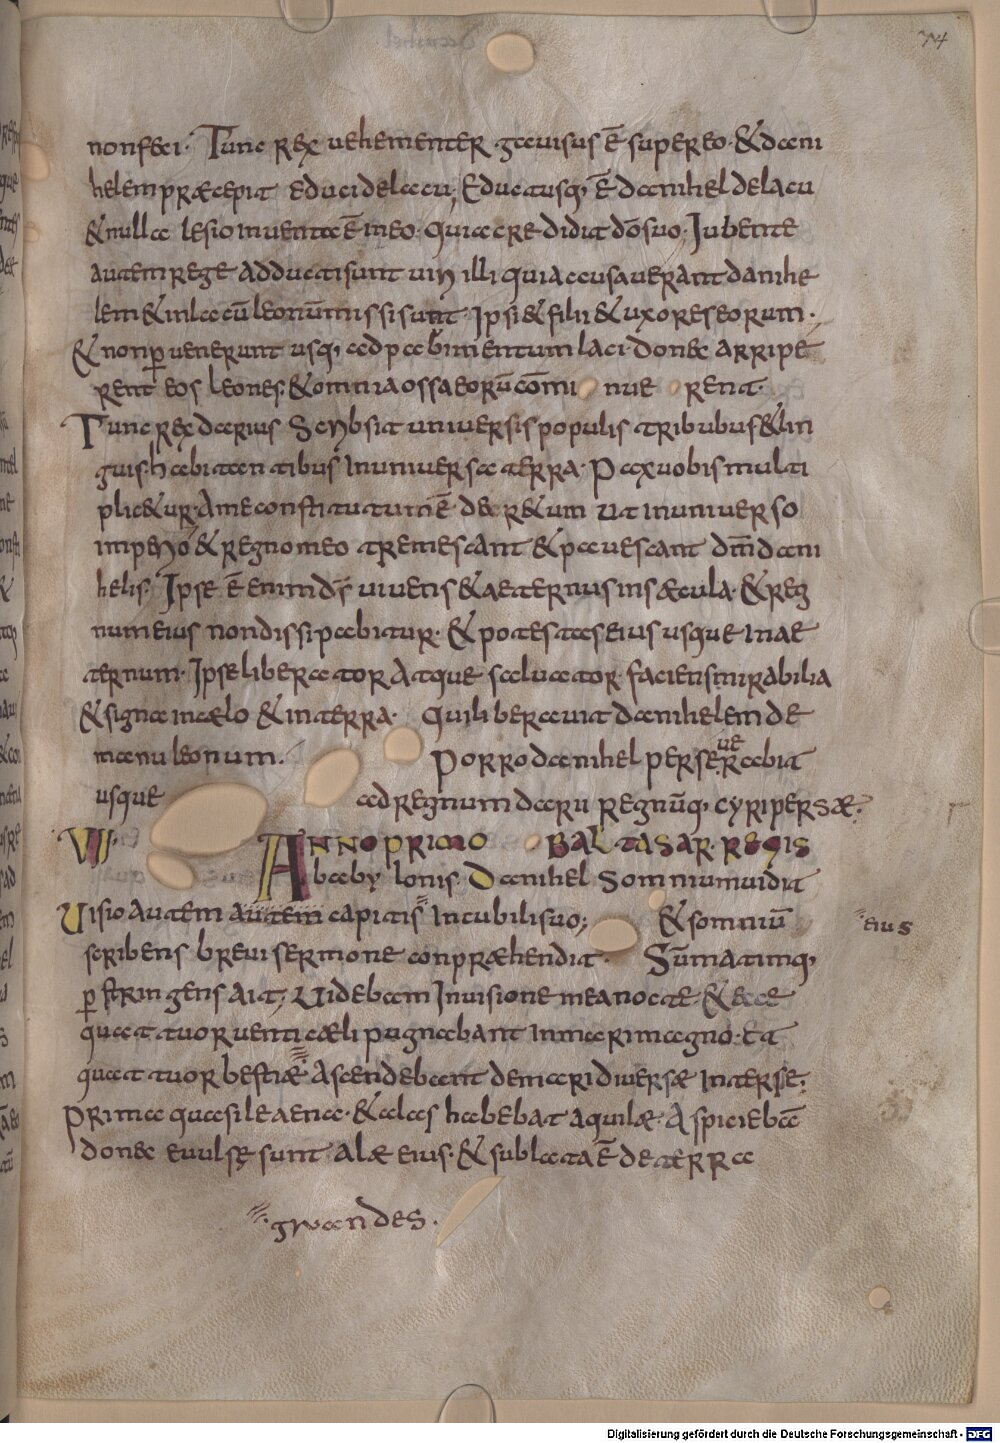 74
non feci. Tunc rex uehementer gauisus ē super eo. & dani
helem præcepit educi de lacu; Eductusq; ē danihel de lacu
& nulla lesio inuenta ē in eo. quia credidit dō suo; Jubente
autem rege adducti sunt uiri illi qui accusauerant danihe
lem & in lacū leonū missi sunt. Ipsi & filii & uxores eorum.
& non ꝑuenerunt usq; ad pabimentum laci. donec arripe
rent eos leones. & omnia ossa eorū cōmi nue rent.
Tunc rex darius scribsit uniuersis populis tribubus & lin
guis habitantibus in uniuersa terra. Pax uobis multi
plic&ur. A me constitutum ē decr&um ut in uniuerso
imperio & regno meo tremescant & pauescant dm̄ dani
helis. Ipse ē enim ds̄ uiuens & aeternus in sæcula. & reg
num eius non dissipabitur. & potestas eius usque in ae
ternum. Ipse liberator atque saluator. faciens mirabilia
& signa in cælo & in terra. Qui liberauit danihelem de
manu leonum. Porro danihel perseuerabit
usque ad regnum darii regnūq; cyri persæ.
VII. Anno primo baltasar regis
babylonis. Danihel somnium uidit
Uisio autem autem capitis in cubili suo; & somniū eius
scribens breui sermone conpræhendit. Sūmatimq;
ꝑstringens ait; Uidebam in uisione mea nocte. & ecce
quattuor uenti cæli pugnabant in mari magno. Et
quattuor bestiæ ascendebant de mari diuersæ inter se.
Prima quasi leaena. & alas habebat aquilæ. Aspiciebā
donec euulsę sunt alæ eius. & sublata ē de terra
grandes.
Digitalisierung gefördert durch die Deutsche Forschungsgemeinschaft - DFG